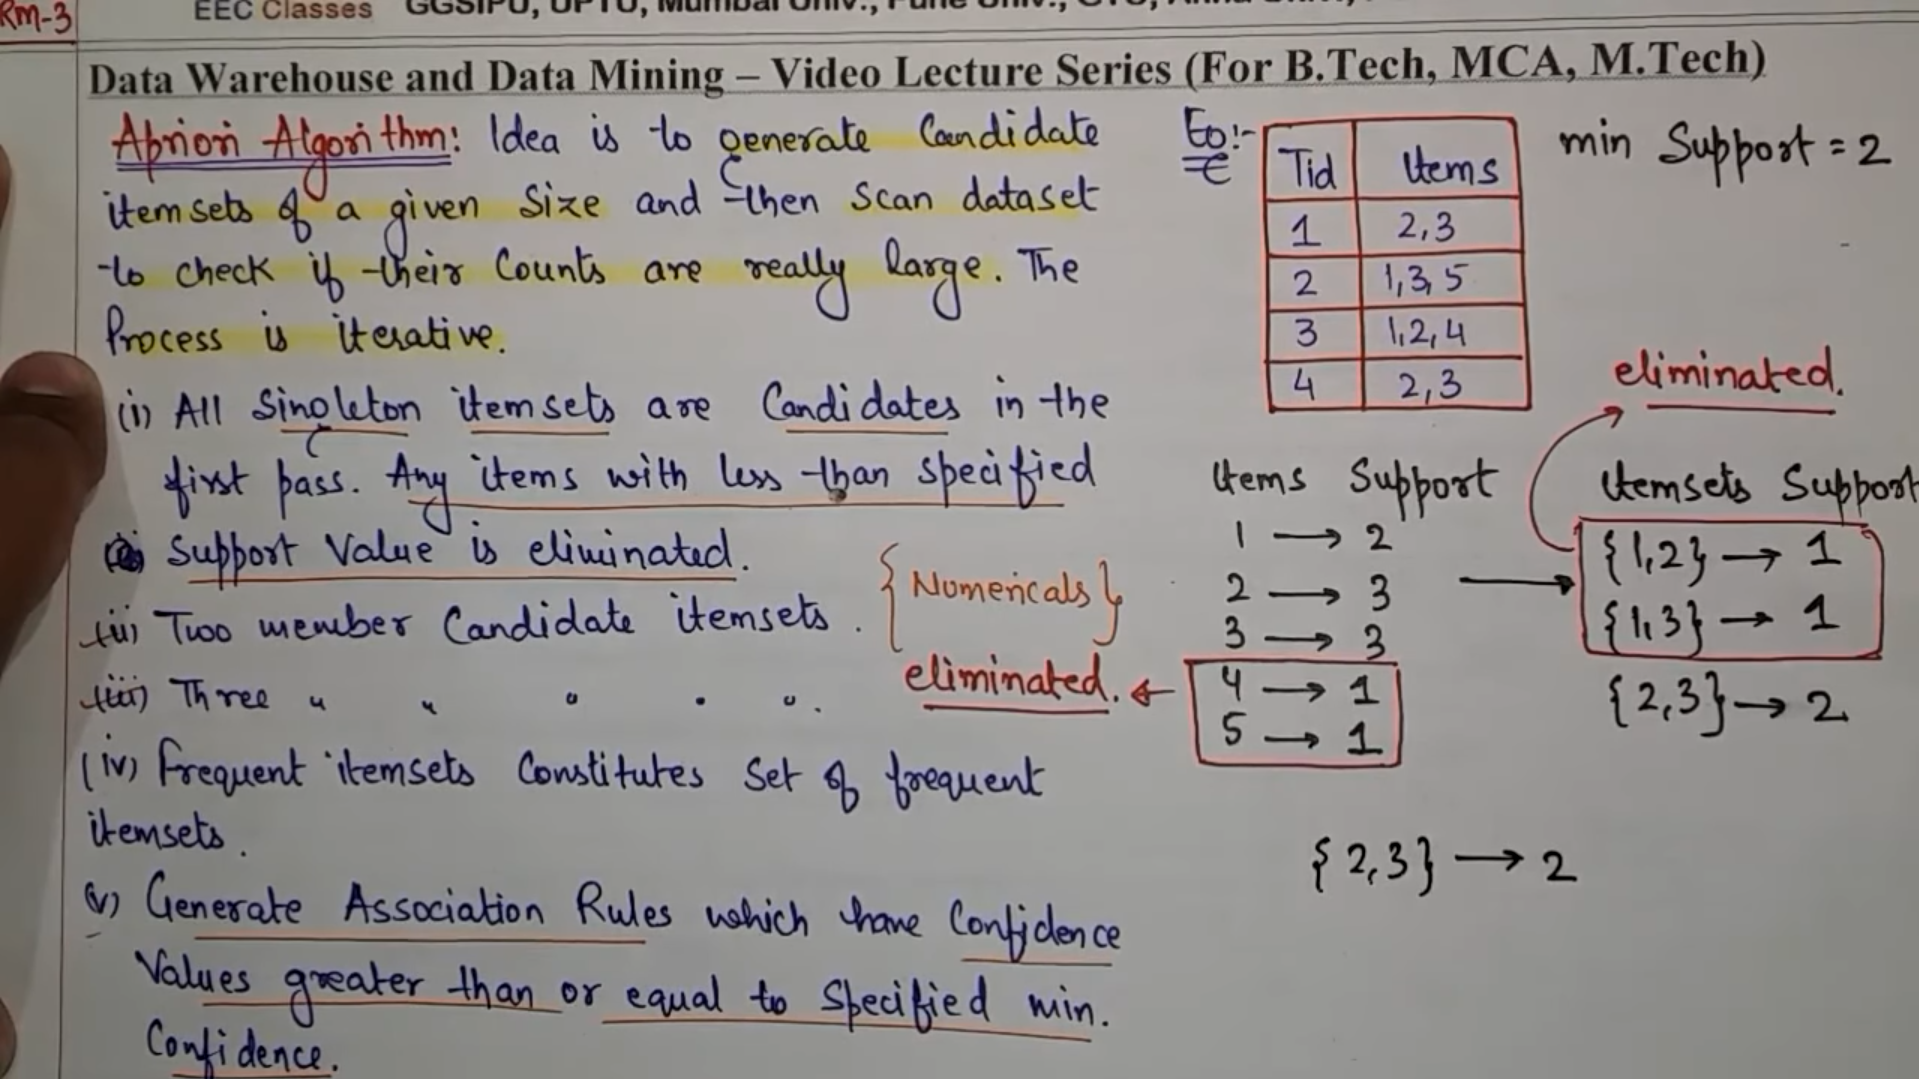 Rm-3
EEC Classes GGSIPU, UPTU, Mumbai Univ., Pune Univ.,
Data Warehouse and Data Mining – Video Lecture Series (For B.Tech, MCA, M.Tech)
Apriori Algorithm: Idea is to generate Candidate
itemsets of a given Size and then scan dataset
to check if their Counts are really large. The
Process is iterative.
(i) All Singleton itemsets are Candidates in the
first pass. Any items with less than specified
Support Value is eliminated.
(ii) Two member Candidate itemsets. {Numericals}
(iii) Three " " " " ".
(iv) Frequent itemsets Constitutes Set of frequent
itemsets.
(v) Generate Association Rules which have Confidence
Values greater than or equal to Specified min.
Confidence.
Eg:-
Tid Items
1 2,3
2 1,3,5
3 1,2,4
4 2,3
min Support = 2
Items Support
1 → 2
2 → 3
3 → 3
4 → 1
5 → 1
eliminated. ←
→
eliminated.
Itemsets Support
{1,2} → 1
{1,3} → 1
{2,3} → 2
{2,3} → 2